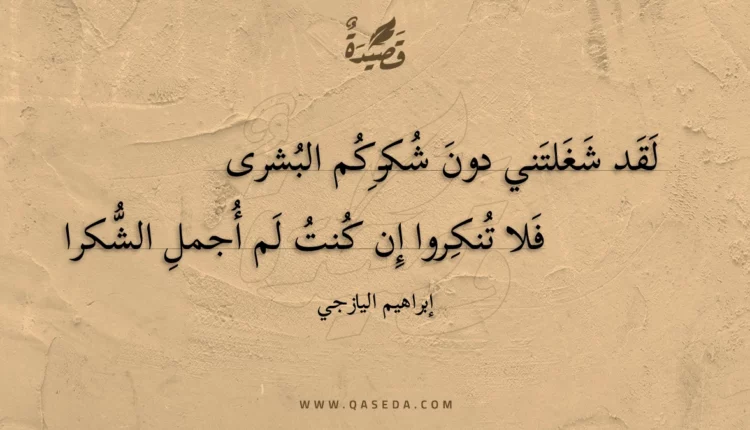 قَصِيدَةٌ
لَقَد شَغَلتَني دونَ شُكرِكُم البُشرى
فَلا تُنكِروا إِن كُنتُ لَم أُجملِ الشُّكرا
إبراهيم اليازجي
WWW.QASEDA.COM